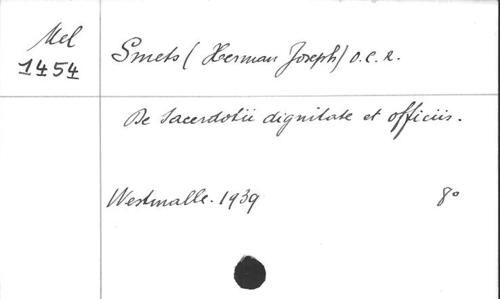 Mel
1454
Smets (Herman Joseph) O.C.R.
De Sacerdotii dignitate et officiis.
Westmalle. 1939 8°